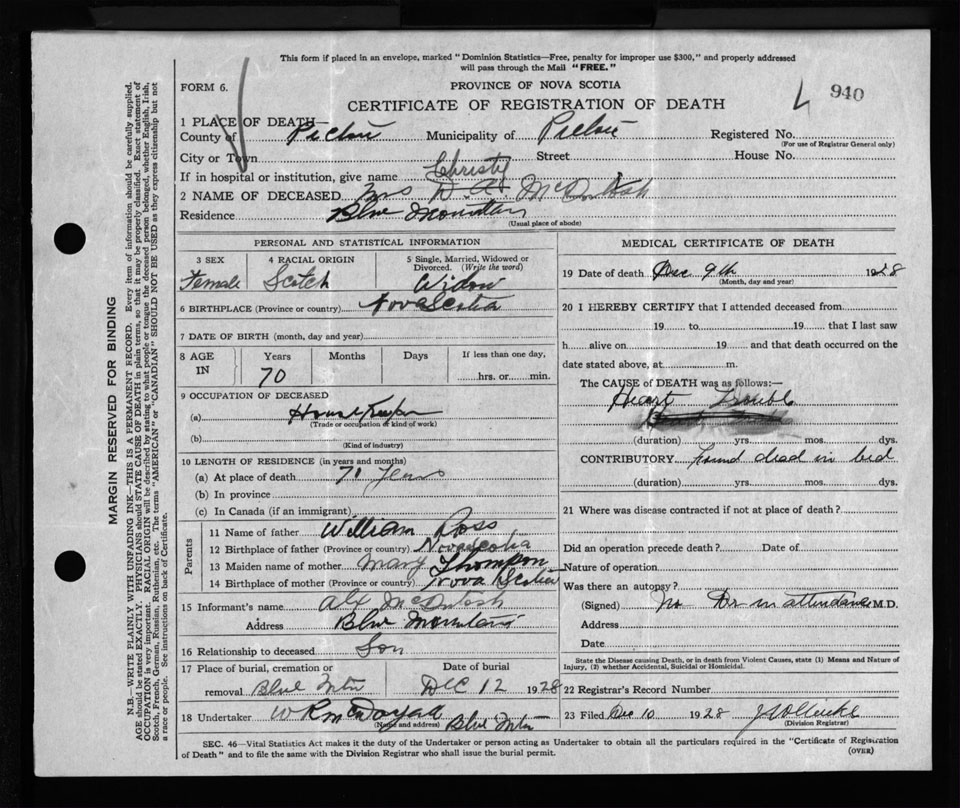 This form if placed in an envelope, marked "Dominion Statistics—Free, penalty for improper use $300," and properly addressed
will pass through the Mail "FREE."
FORM 6.
PROVINCE OF NOVA SCOTIA
CERTIFICATE OF REGISTRATION OF DEATH
940
1 PLACE OF DEATH—
County of Pictou Municipality of Pictou Registered No.
(For use of Registrar General only)
City or Town Street House No.
If in hospital or institution, give name
Christy
2 NAME OF DECEASED Mrs D. A. McIntosh
Residence Blue Mountain
(Usual place of abode)
PERSONAL AND STATISTICAL INFORMATION
3 SEX 4 RACIAL ORIGIN 5 Single, Married, Widowed or Divorced. (Write the word)
Female Scotch Widow
6 BIRTHPLACE (Province or country) Nova Scotia
7 DATE OF BIRTH (month, day and year)
8 AGE IN Years Months Days If less than one day,
70 hrs. or min.
9 OCCUPATION OF DECEASED
(a) House Keeper
(Trade or occupation or kind of work)
(b)
(Kind of industry)
10 LENGTH OF RESIDENCE (in years and months)
(a) At place of death 71 Years
(b) In province
(c) In Canada (if an immigrant)
Parents
11 Name of father William Ross
12 Birthplace of father (Province or country) Nova Scotia
13 Maiden name of mother Mary Thompson
14 Birthplace of mother (Province or country) Nova Scotia
15 Informant's name Alx McIntosh
Address Blue Mountain
16 Relationship to deceased Son
17 Place of burial, cremation or removal Blue Mtn Date of burial Dec 12 1928
18 Undertaker Blue Mtn
(Name and address)
MEDICAL CERTIFICATE OF DEATH
19 Date of death Dec 9th 1928
(Month, day and year)
20 I HEREBY CERTIFY that I attended deceased from
19 to 19 that I last saw
h alive on 19 and that death occurred on the
date stated above, at m.
The CAUSE of DEATH was as follows:—
Heart Trouble
(duration) yrs. mos. dys.
CONTRIBUTORY found dead in bed
(duration) yrs. mos. dys.
21 Where was disease contracted if not at place of death?
Did an operation precede death? Date of
Nature of operation
Was there an autopsy?
(Signed) No Dr in attendance M.D.
Address
Date
State the Disease causing Death, or in death from Violent Causes, state (1) Means and Nature of
Injury, (2) whether Accidental, Suicidal or Homicidal.
22 Registrar's Record Number
23 Filed Dec 10 1928
(Division Registrar)
SEC. 46—Vital Statistics Act makes it the duty of the Undertaker or person acting as Undertaker to obtain all the particulars required in the "Certificate of Registration
of Death" and to file the same with the Division Registrar who shall issue the burial permit.
(OVER)
MARGIN RESERVED FOR BINDING
N.B.—WRITE PLAINLY WITH UNFADING INK—THIS IS A PERMANENT RECORD. Every item of information should be carefully supplied.
AGE should be stated EXACTLY. PHYSICIANS should STATE CAUSE OF DEATH in plain terms, so that it may be properly classified. Exact statement of
OCCUPATION is very important. RACIAL ORIGIN will be described by stating to what people or tongue the deceased person belonged, whether English, Irish,
Scotch, French, German, Russian, Ruthenian, etc. The terms "AMERICAN" or "CANADIAN" SHOULD NOT BE USED as they express citizenship but not
a race or people. See instructions on back of Certificate.